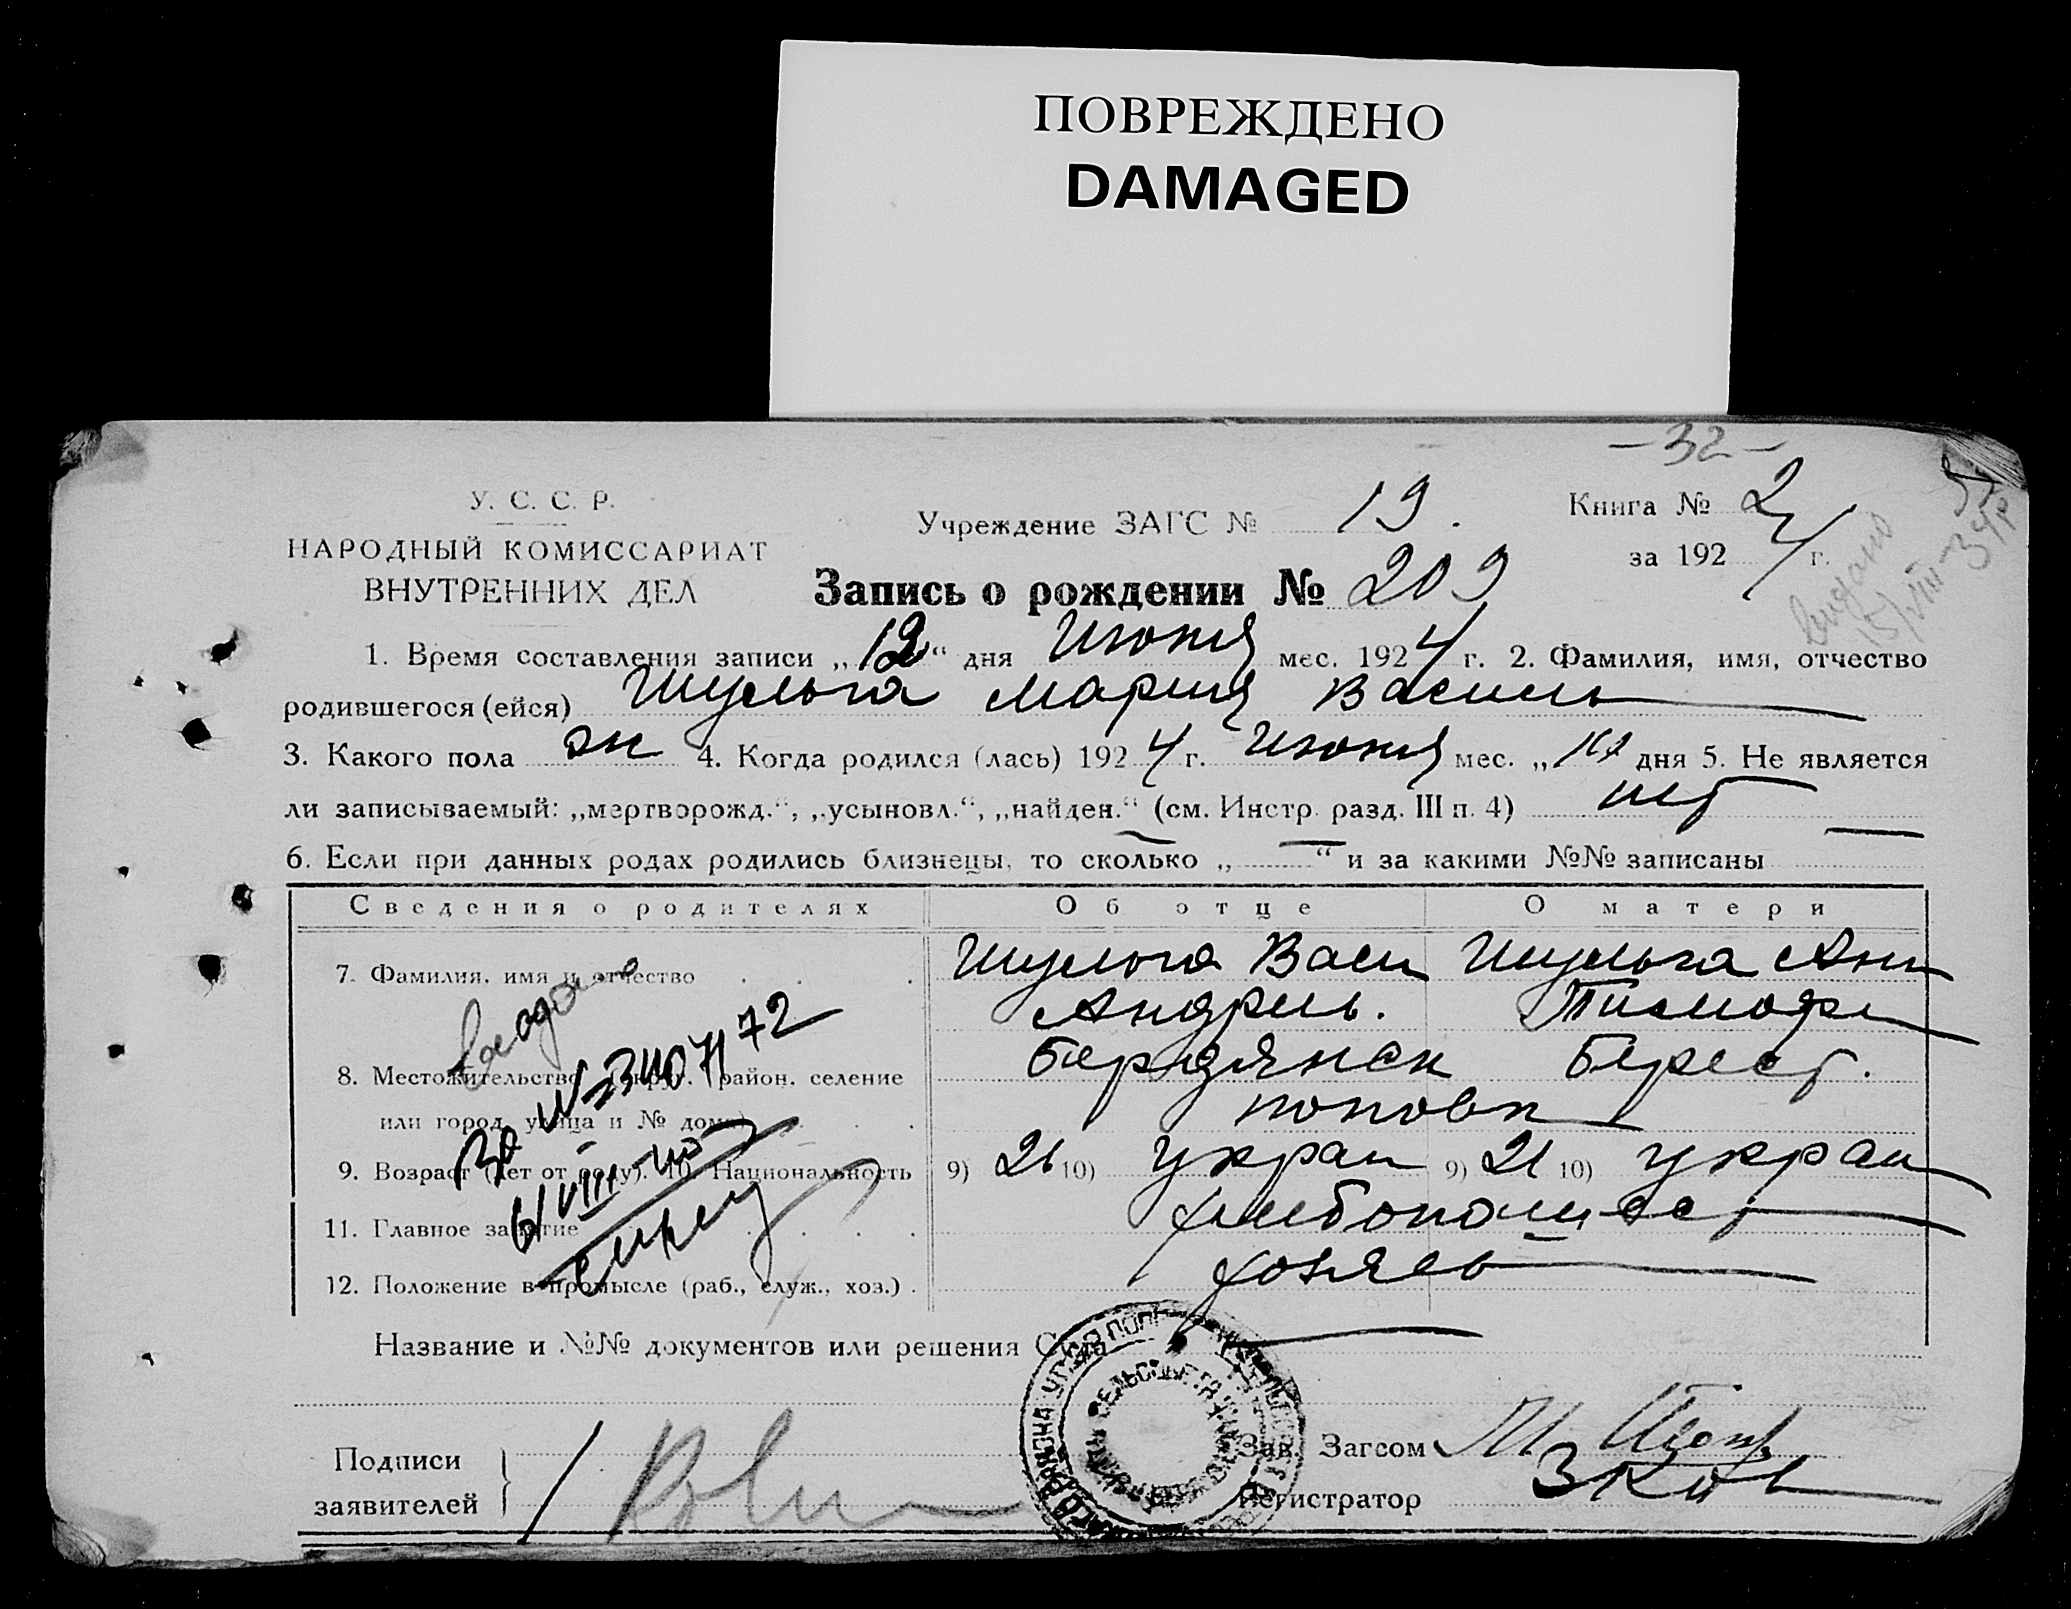 ПОВРЕЖДЕНО
DAMAGED
- 32 -
У. С. С. Р.
НАРОДНЫЙ КОМИССАРИАТ
ВНУТРЕННИХ ДЕЛ
Учреждение ЗАГС № 19.
Книга № 2
за 1924 г.
Запись о рождении № 209
1. Время составления записи „12“ дня Июня мес. 1924 г. 2. Фамилия, имя, отчество
родившегося (ейся) Шульга Мария Василь
3. Какого пола жн 4. Когда родился (лась) 1924 г. Июня мес. „ дня 5. Не является
ли записываемый: „мертворожд.“, „усыновл.“, „найден.“ (см. Инстр. разд. III п. 4) нет
6. Если при данных родах родились близнецы, то сколько „ — “ и за какими №№ записаны —
Сведения о родителях Об отце О матери
7. Фамилия, имя и отчество Шульга Васи Шульга Анн
Андреь. Тимофе
8. Местожительство (округ, район, селение Бердянск Берест.
или город, улица и № дома) поповк
9. Возраст (лет от роду). 10. Национальность 9) 21 10) Украи 9) 21 10) Украи
11. Главное занятие хлебопашест
12. Положение в промысле (раб., служ., хоз.) хозяев
Название и №№ документов или решения Суда —
Подписи
заявителей
Зав. Загсом
Регистратор